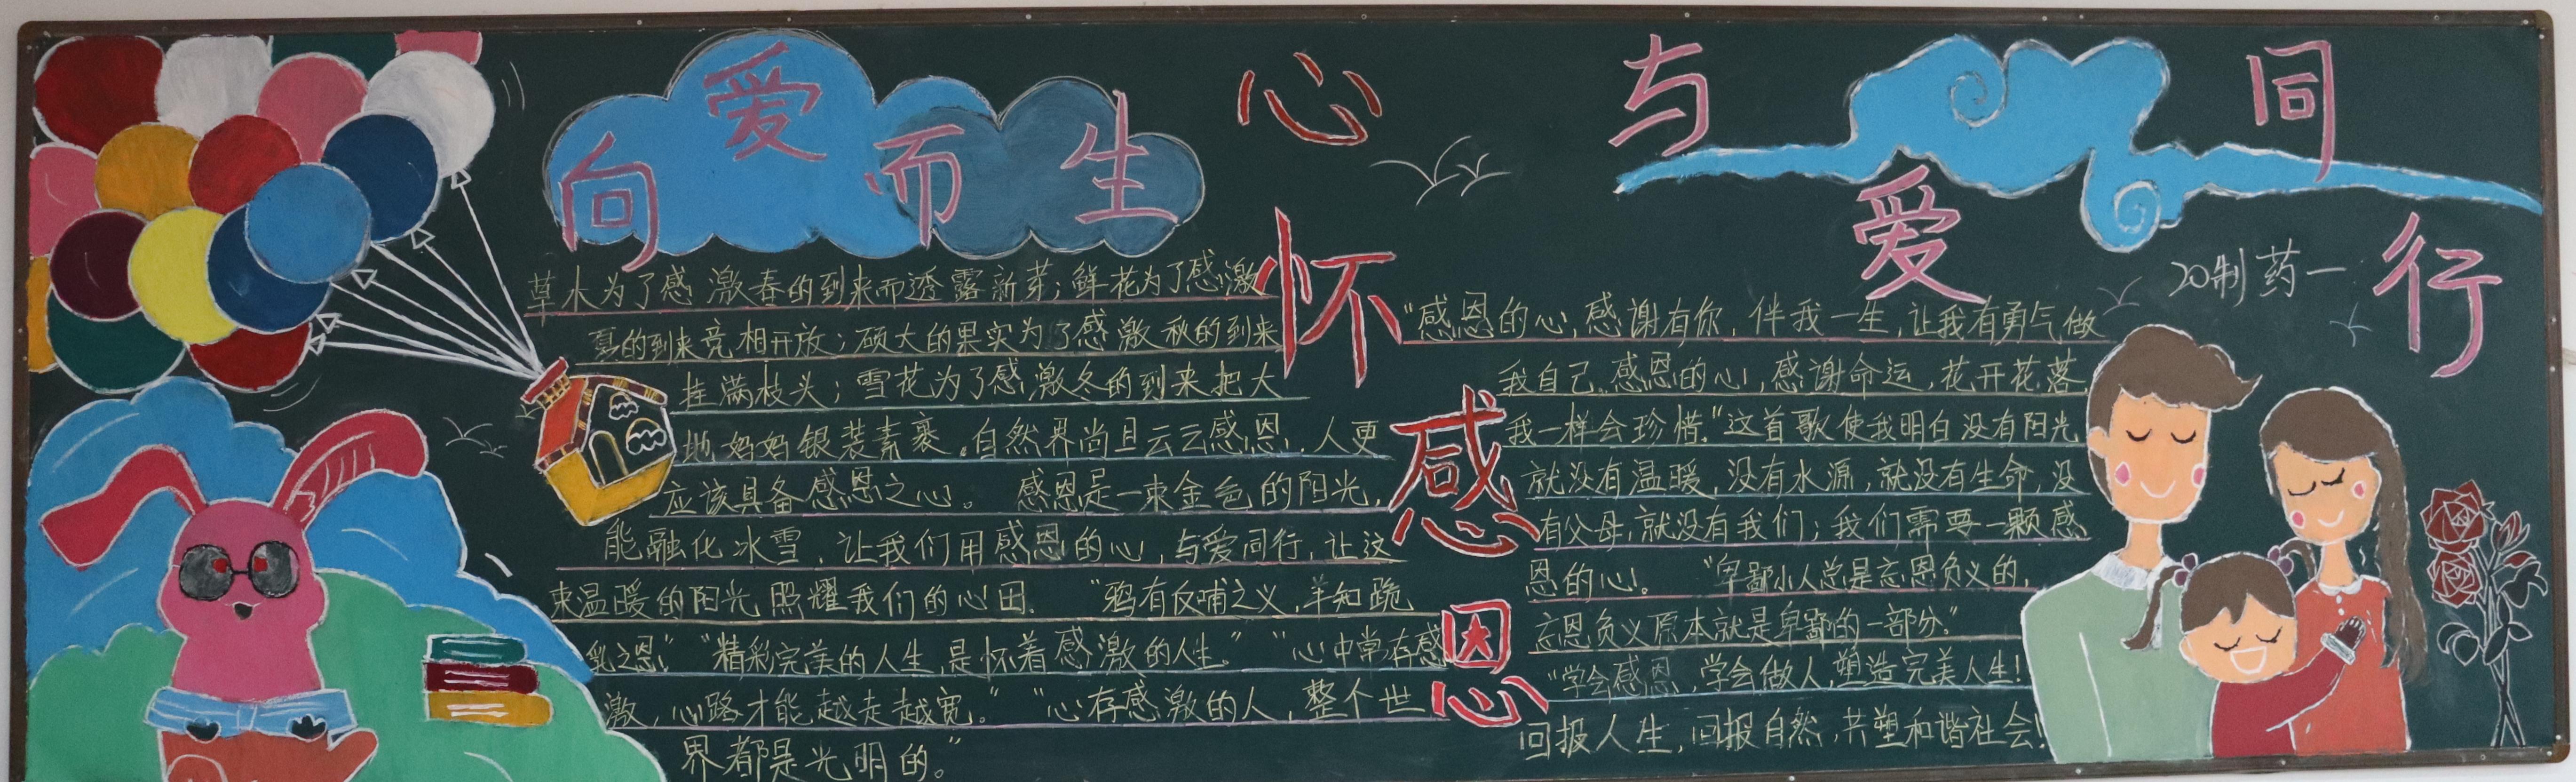 向爱而生
心怀感恩
与爱同行
20制药一
草木为了感激春的到来而透露新芽；鲜花为了感激
夏的到来竞相开放；硕大的果实为了感激秋的到来
挂满枝头；雪花为了感激冬的到来把大
地妈妈银装素裹。自然界尚且云云感恩，人更
应该具备感恩之心。 感恩是一束金色的阳光，
能融化冰雪，让我们用感恩的心，与爱同行，让这
束温暖的阳光照耀我们的心田． “鸦有反哺之义，羊知跪
乳之恩” “精彩完美的人生，是怀着感激的人生” “心中常存感
激，心路才能越走越宽。” “心存感激的人，整个世
界都是光明的。”
“感恩的心，感谢有你，伴我一生，让我有勇气做
我自己．感恩的心，感谢命运，花开花落
我一样会珍惜．”这首歌使我明白没有阳光
就没有温暖，没有水源，就没有生命，没
有父母，就没有我们；我们需要一颗感
恩的心！ “卑鄙小人总是忘恩负义的，
忘恩负义原本就是卑鄙的一部分”
“学会感恩，学会做人，塑造完美人生！
回报人生，回报自然，共塑和谐社会！